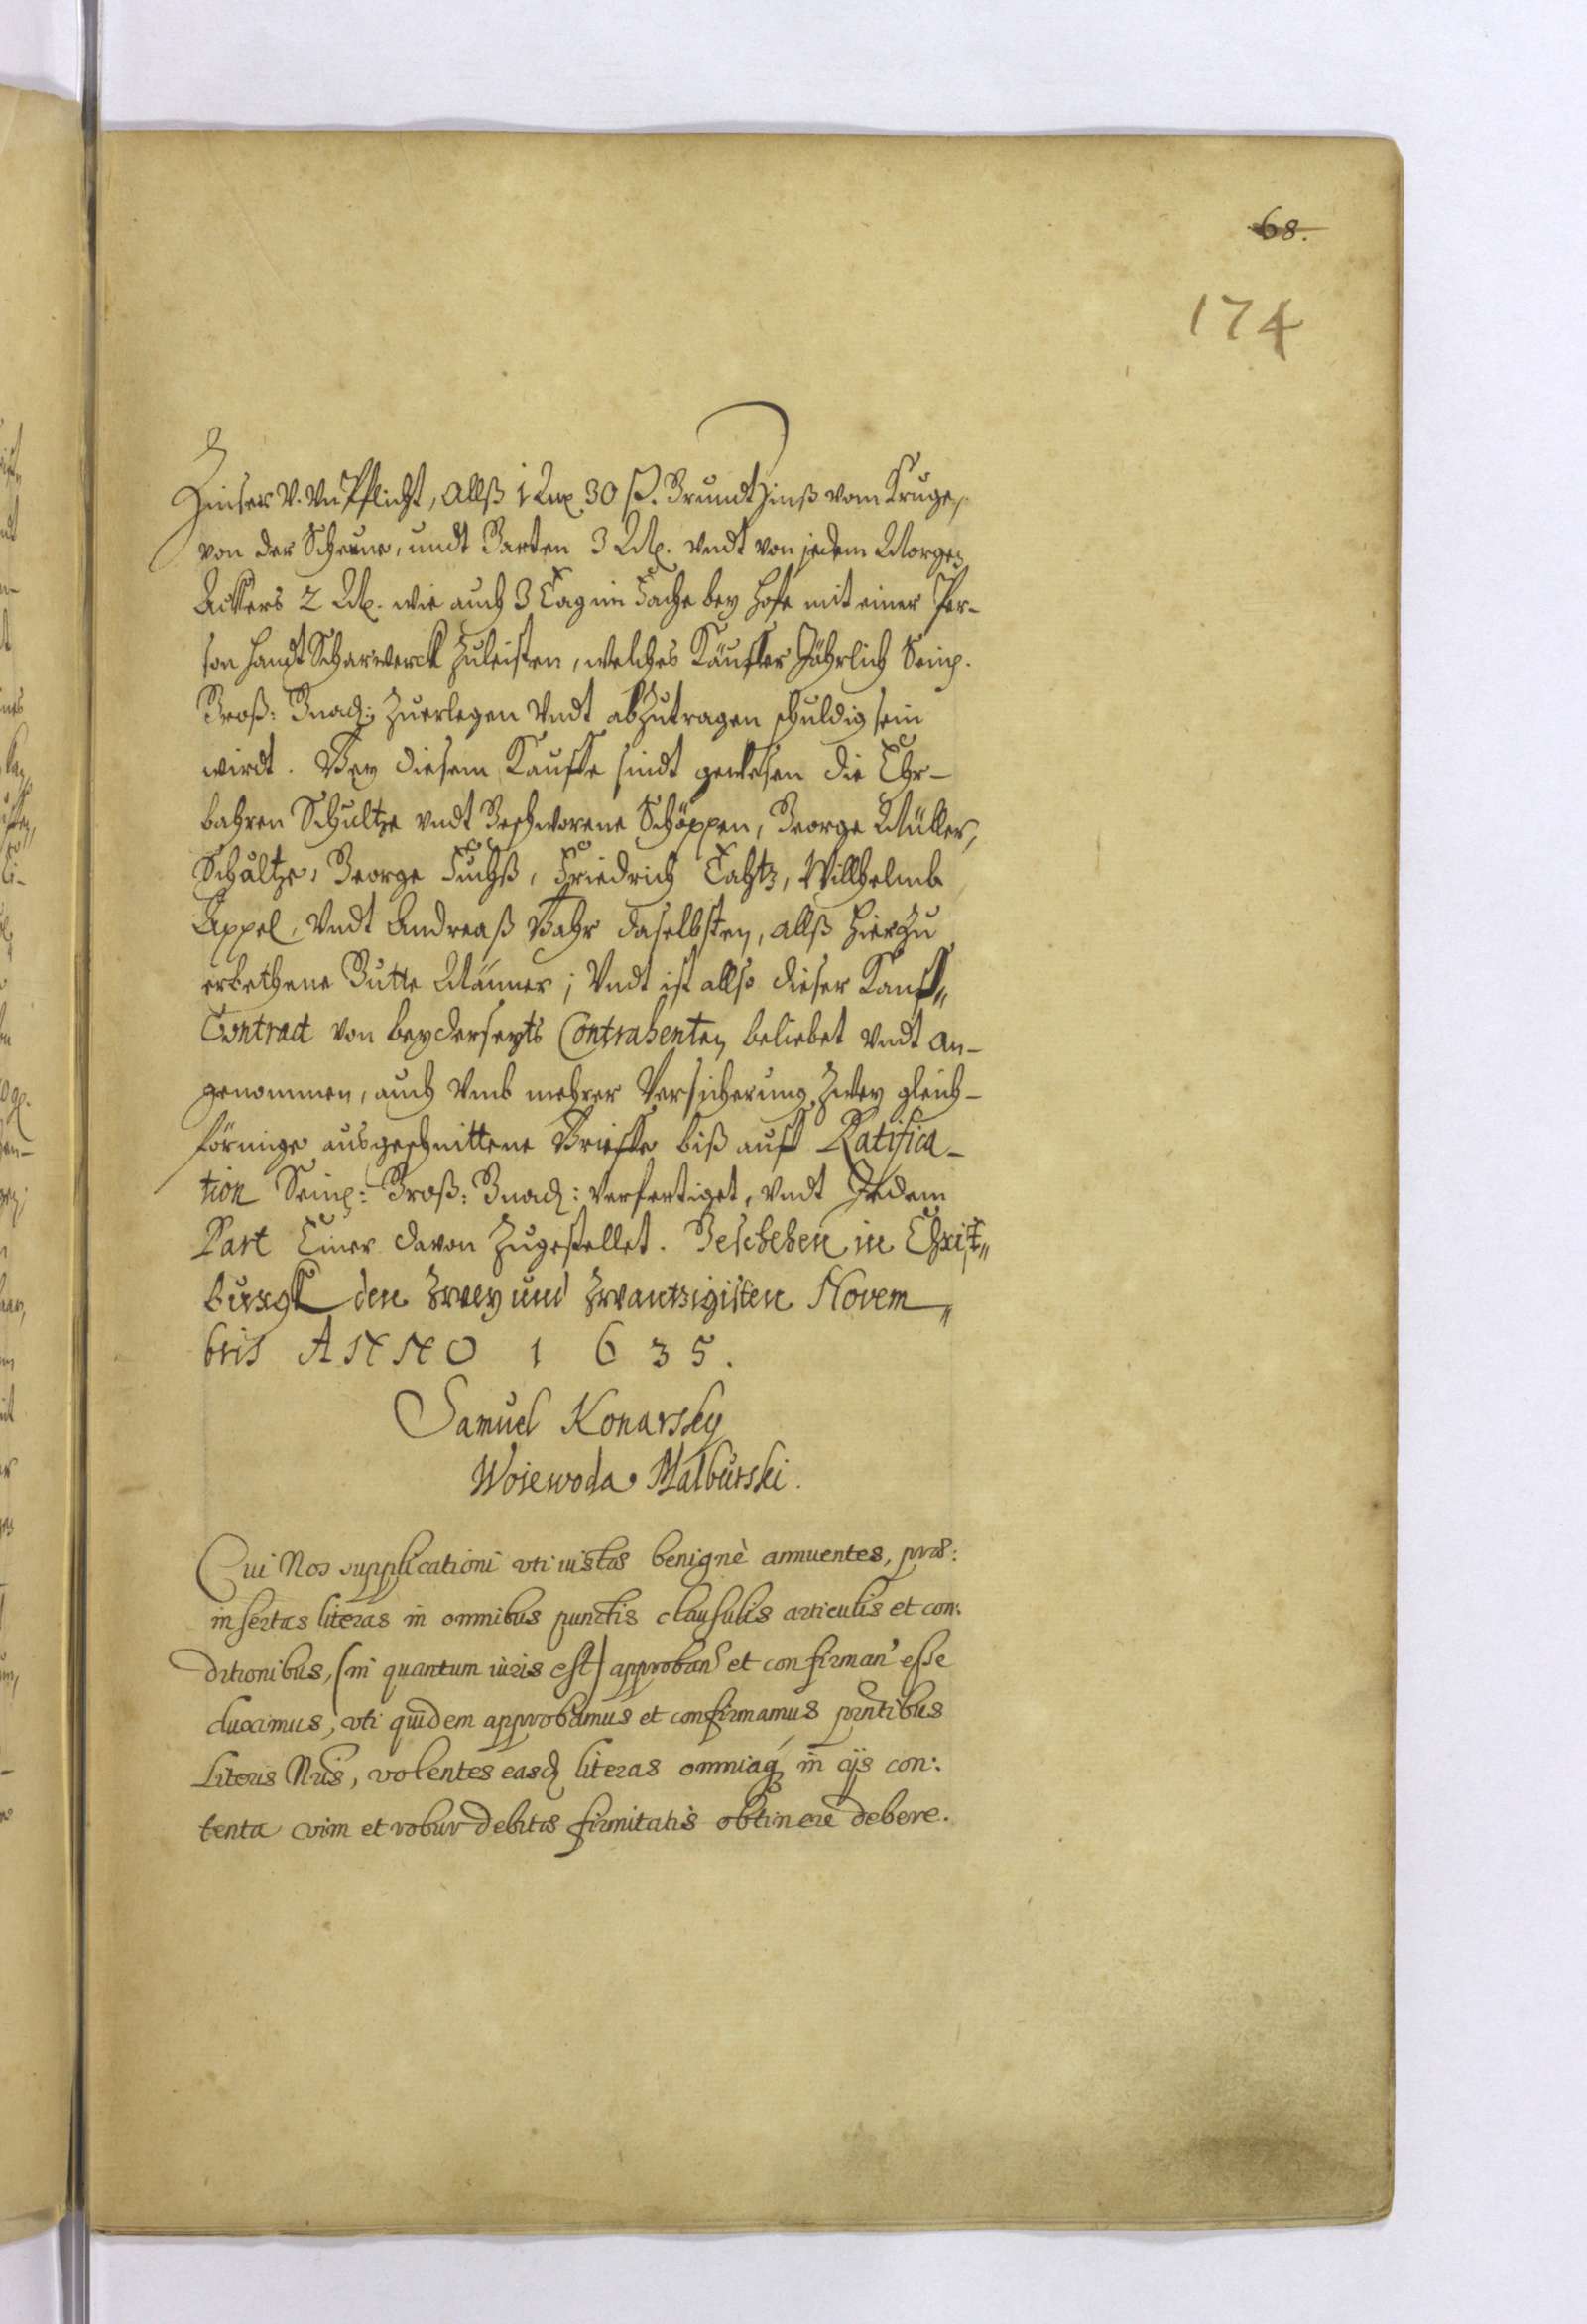 68.
174
Zinser v. Vn Pflicht, Allß 1 30 ß. Grundtzinß vom Kruge,
von der Scheune, undt Garten 3 Mk. Vndt von jedem Morgen
Ackers 2 Mk. wie auch 3 Tag im Fache bey Hofe mit einer Per-
son Handt Scharwerck Zuleisten, welches Käuffer Jährlich Seine.
Groß: Gnad: Zuerlegen Vndt abZutragen schuldig sein
wirdt. Bey diesem Kauffe sindt gewesen die Ehr-
bahren Schultze vndt Geschworene Schöppen, George Müller,
Schultze, George Fuchß, Friedrich Tahtz, Willhelmb
Appel, Vndt Andreaß Bahr daselbsten, allß hierZu
erbethene Gutte Männer; Vndt ist allso dieser Kauff„
Contract von beyderseyts Contrahenten beliebet Vndt an-
genommen, auch Vmb mehrer Versicherung Zwey gleich-
förmige ausgeschnittene Brieffe biß auff Ratifica-
tion Seine: Groß: Gnad: Verfertiget, Vndt Jedem
Part Einer davon Zugestellet. Geschehen in Christ„
burgk den Zwey und Zwantzigisten Novem„
bris ANNO 1635.
Samuel Konarsky
Woiewoda Malburski.
Cui Nos supplicationi vti iustæ benignè annuentes, præ:
insertas literas in omnibus punctis clausulis articulis et con:
ditionibus, (in quantum iuris est) approban' et confirman' esse
duximus, vti quidem approbamus et confirmamus pñtibus
Literis Nris, volentes easdem literas omniaq; in ijs con:
tenta vim et robur debitæ firmitatis obtinere debere.